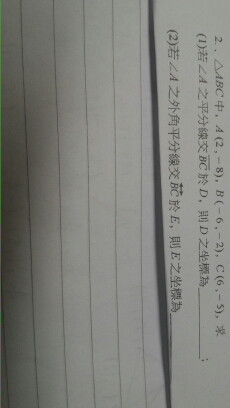 2.. △ABC中，A(2,-8)，B(-6,-2)，C(6,-5)，求
(1)若∠A之平分線交BC於D，則D之坐標為______；
(2)若∠A之外角平分線交BC於E，則E之坐標為______